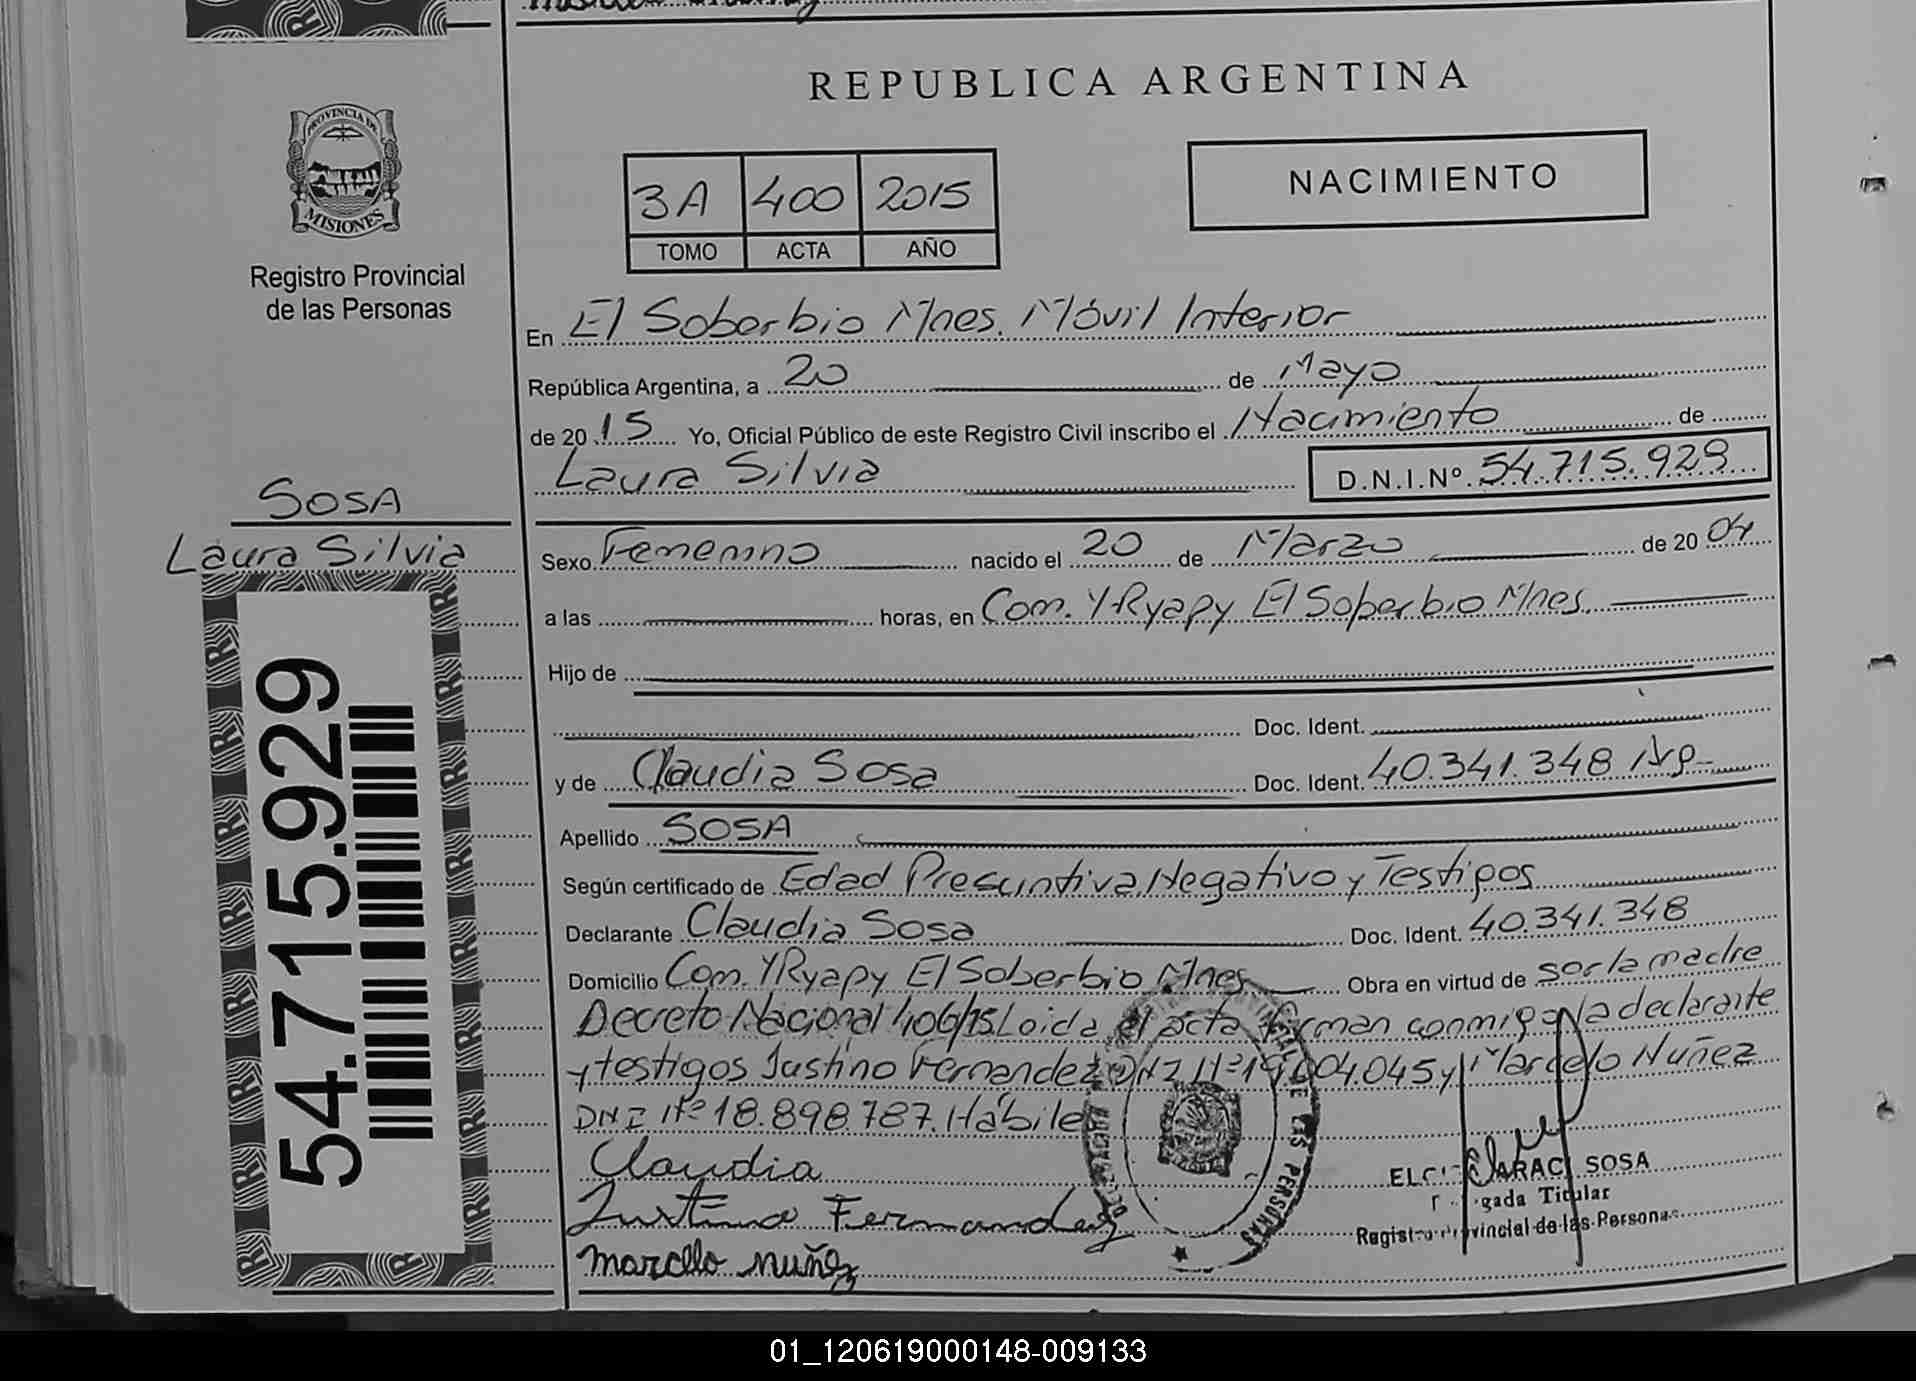 REPUBLICA ARGENTINA
PROVINCIA DE
MISIONES
Registro Provincial
de las Personas
3A 400 2015
TOMO ACTA AÑO
NACIMIENTO
En El Soberbio Mnes. Móvil Interior
República Argentina, a 20 de Mayo
de 2015 Yo, Oficial Público de este Registro Civil inscribo el Nacimiento de
Laura Silvia D.N.I.Nº 54.715.929
SOSA
Laura Silvia
54.715.929
Sexo Femenino nacido el 20 de Marzo de 2004
a las horas, en Com. YRyapy El Soberbio Mnes.
Hijo de
Doc. Ident.
y de Claudia Sosa Doc. Ident. 40.341.348 Arg
Apellido SOSA
Según certificado de Edad Presuntiva, Negativo y Testigos
Declarante Claudia Sosa Doc. Ident. 40.341.348
Domicilio Com. YRyapy El Soberbio Mnes Obra en virtud de ser la madre
Decreto Nacional 406/15 Loida el acta firman conmigo la declarante
y testigos Justino Fernandez DNI Nº y Marcelo Nuñez
DNI Nº 18.898.787. Hábiles
Claudia
Justino Fernandez
marcelo nuñez
DE LAS PERSONAS
SOSA
Titular
Registro Provincial de las Personas
01_120619000148-009133